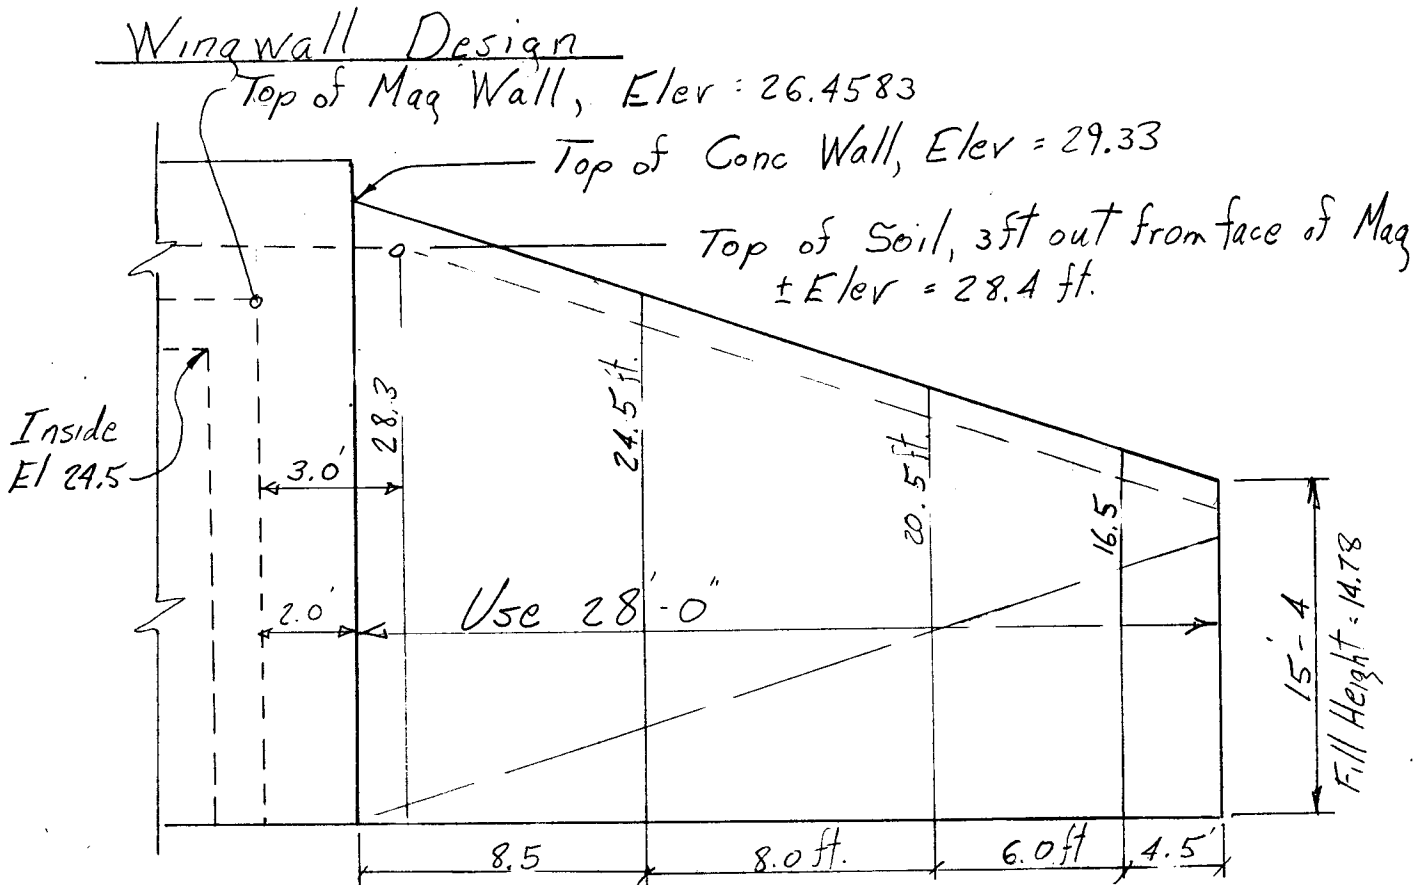 Wingwall Design
Top of Mag Wall, Elev = 26.4583
Top of Conc Wall, Elev = 29.33
Top of Soil, 3ft out from face of Mag
± Elev = 28.4 ft.
Inside
El 24.5
3.0'
28.3
24.5 ft.
20.5 ft.
16.5
2.0'
Use 28'-0"
15'-4
Fill Height = 14.78
8.5
8.0 ft.
6.0 ft
4.5'